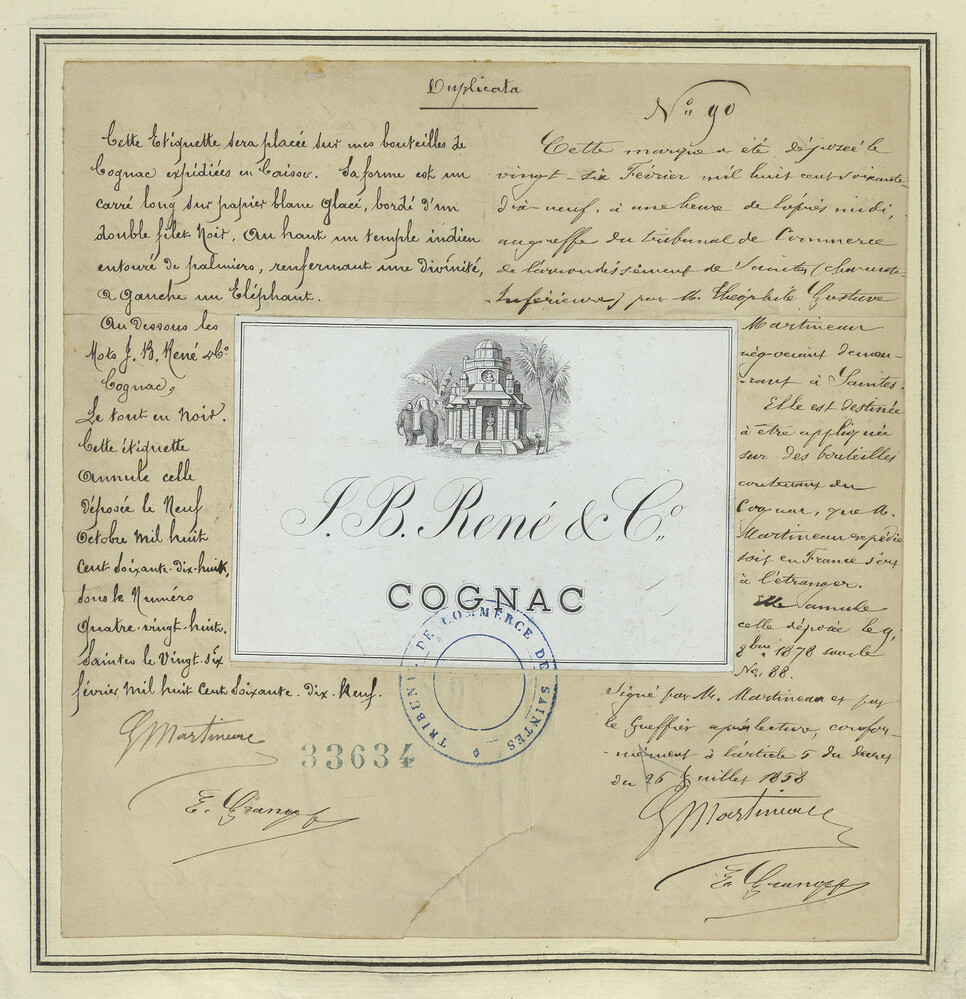 Duplicata
Cette Etiquette sera placée sur mes bouteilles de
Cognac expédiées en Caisse. Sa forme est un
carré long sur papier blanc glacé, bordé d'un
double filet Noir, Au haut un temple indien
entouré de palmiers, renfermant une divinité,
à gauche un Eléphant.
Au Dessous les
Mots J. B. René & Cº
Cognac,
Le tout en Noir.
Cette étiquette
Annule celle
déposée le Neuf
Octobre Mil huit
Cent Soixante-dix-huit,
sous le Numéro
Quatre-vingt-huit.
Saintes le Vingt-Six
février Mil huit Cent Soixante-Dix-Neuf.
GMartineau
33634
Nº 90
Cette marque a été déposée le
vingt-six Février mil huit cent soixante-
dix-neuf, à une heure de l'après midi,
au greffe du tribunal de Commerce
de l'arrondissement de Saintes (Charente-
Inférieure) par M. Théophile Gustave
Martineau
négociant demeu-
rant à Saintes.
Elle est destinée
à être appliquée
sur des bouteilles
contenant du
Cognac, que M.
Martineau expédie
soit en France soit
à l'étranger.
Elle annule
celle déposée le 9
8bre 1878 sous le
Nº 88.
Signé par M. Martineau et par
le Greffier après lecture, confor-
mément à l'article 5 du décret
du 26 Juillet 1858
GMartineau
J. B. René & Cº
COGNAC
TRIBUNAL DE COMMERCE DE SAINTES